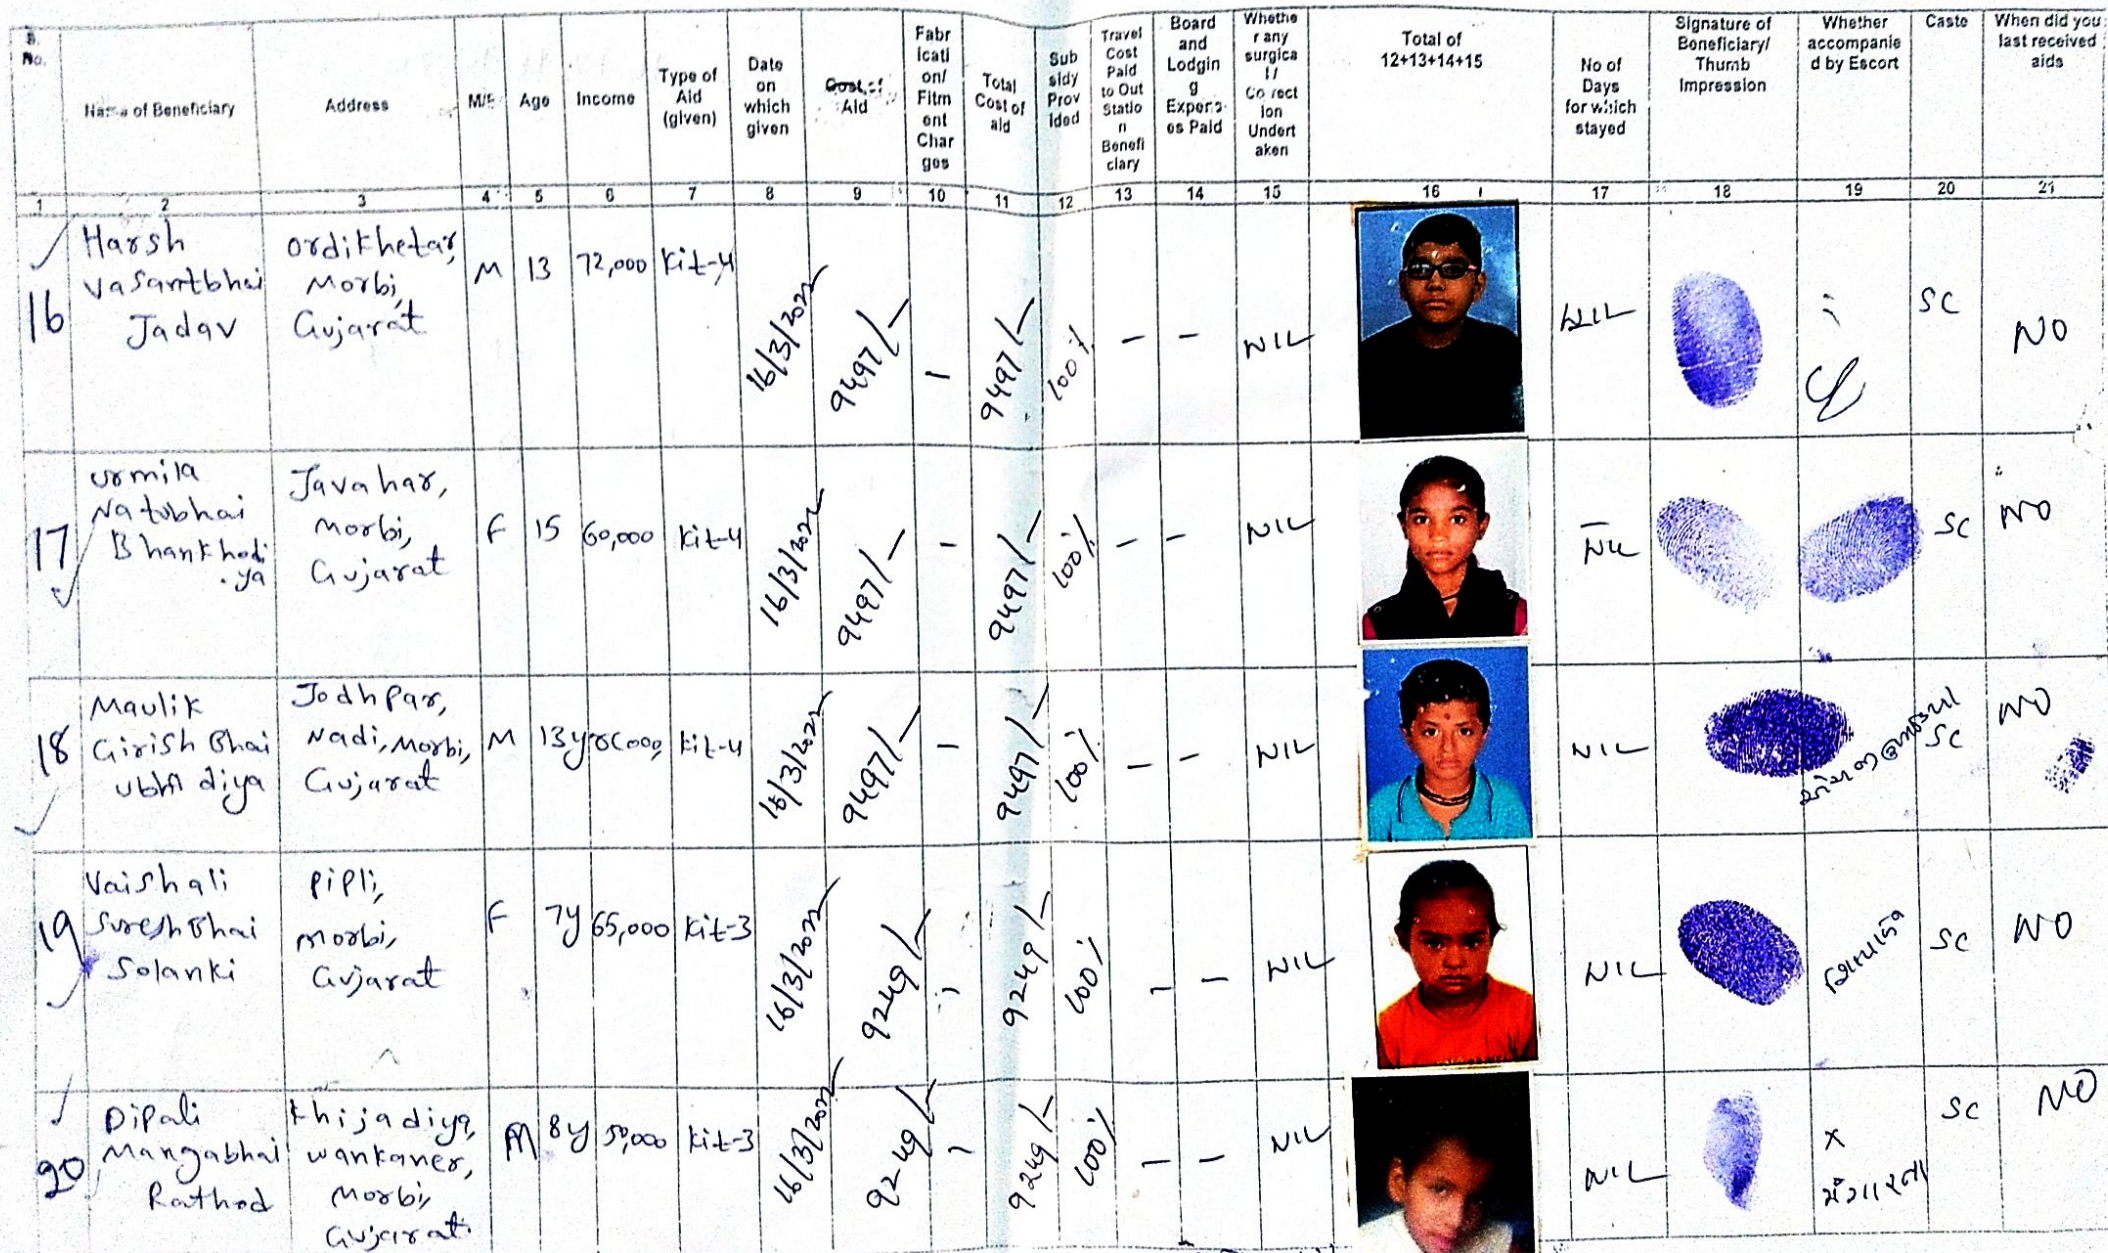 S. No.
Name of Beneficiary
Address
M/F
Age
Income
Type of Aid (given)
Date on which given
Cost of Aid
Fabr icati on/ Fitm ent Char ges
Total Cost of aid
Sub sidy Prov ided
Travel Cost Paid to Out Statio n Benefi ciary
Board and Lodgin g Expens es Paid
Whethe r any surgica l/ Co rect ion Undert aken
Total of 12+13+14+15
No of Days for which stayed
Signature of Beneficiary/ Thumb Impression
Whether accompanie d by Escort
Caste
When did you last received aids
1 2 3 4 5 6 7 8 9 10 11 12 13 14 15 16 17 18 19 20 21
16
Harsh
Vasantbhai
Jadav
Ordikhetar,
Morbi,
Gujarat
M 13 72,000 Kit-4
16/3/2022
9497/-
-
9497/-
100%
- -
NIL
NIL
SC
NO
17
Urmila
Natubhai
Bhankhodi
.ya
Javahar,
Morbi,
Gujarat
F 15 60,000 Kit-4
16/3/2022
9497/-
-
9497/-
100%
- -
NIL
NIL
SC
NO
18
Maulik
Girish Bhai
Ubhadiya
Jodhpar,
Nadi, Morbi,
Gujarat
M 13y Kit-4
16/3/2022
9497/-
-
9497/-
100%
- -
NIL
NIL
SC
NO
19
Vaishali
SureshBhai
Solanki
Pipli,
Morbi,
Gujarat
F 7y 65,000 Kit-3
16/3/2022
9249/-
-
9249/-
100%
- -
NIL
NIL
SC
NO
20
Dipali
Mangabhai
Rathod
Khijadiya,
Wankaner,
Morbi,
Gujarat
M 8y 50,000 Kit-3
16/3/2022
9249/-
-
9249/-
100%
- -
NIL
NIL
x
SC
NO